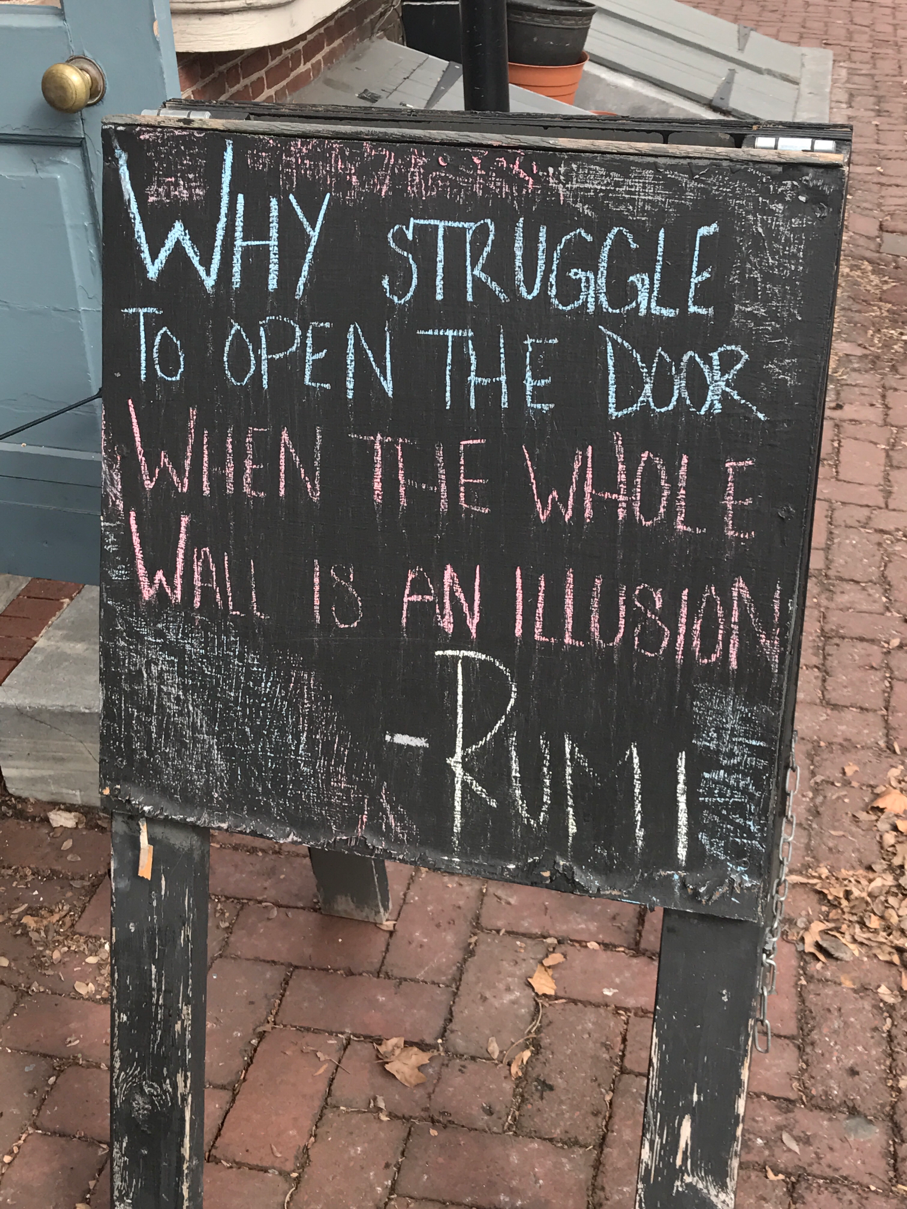 WHY STRUGGLE
TO OPEN THE DOOR
WHEN THE WHOLE
WALL IS AN ILLUSION
-RUMI